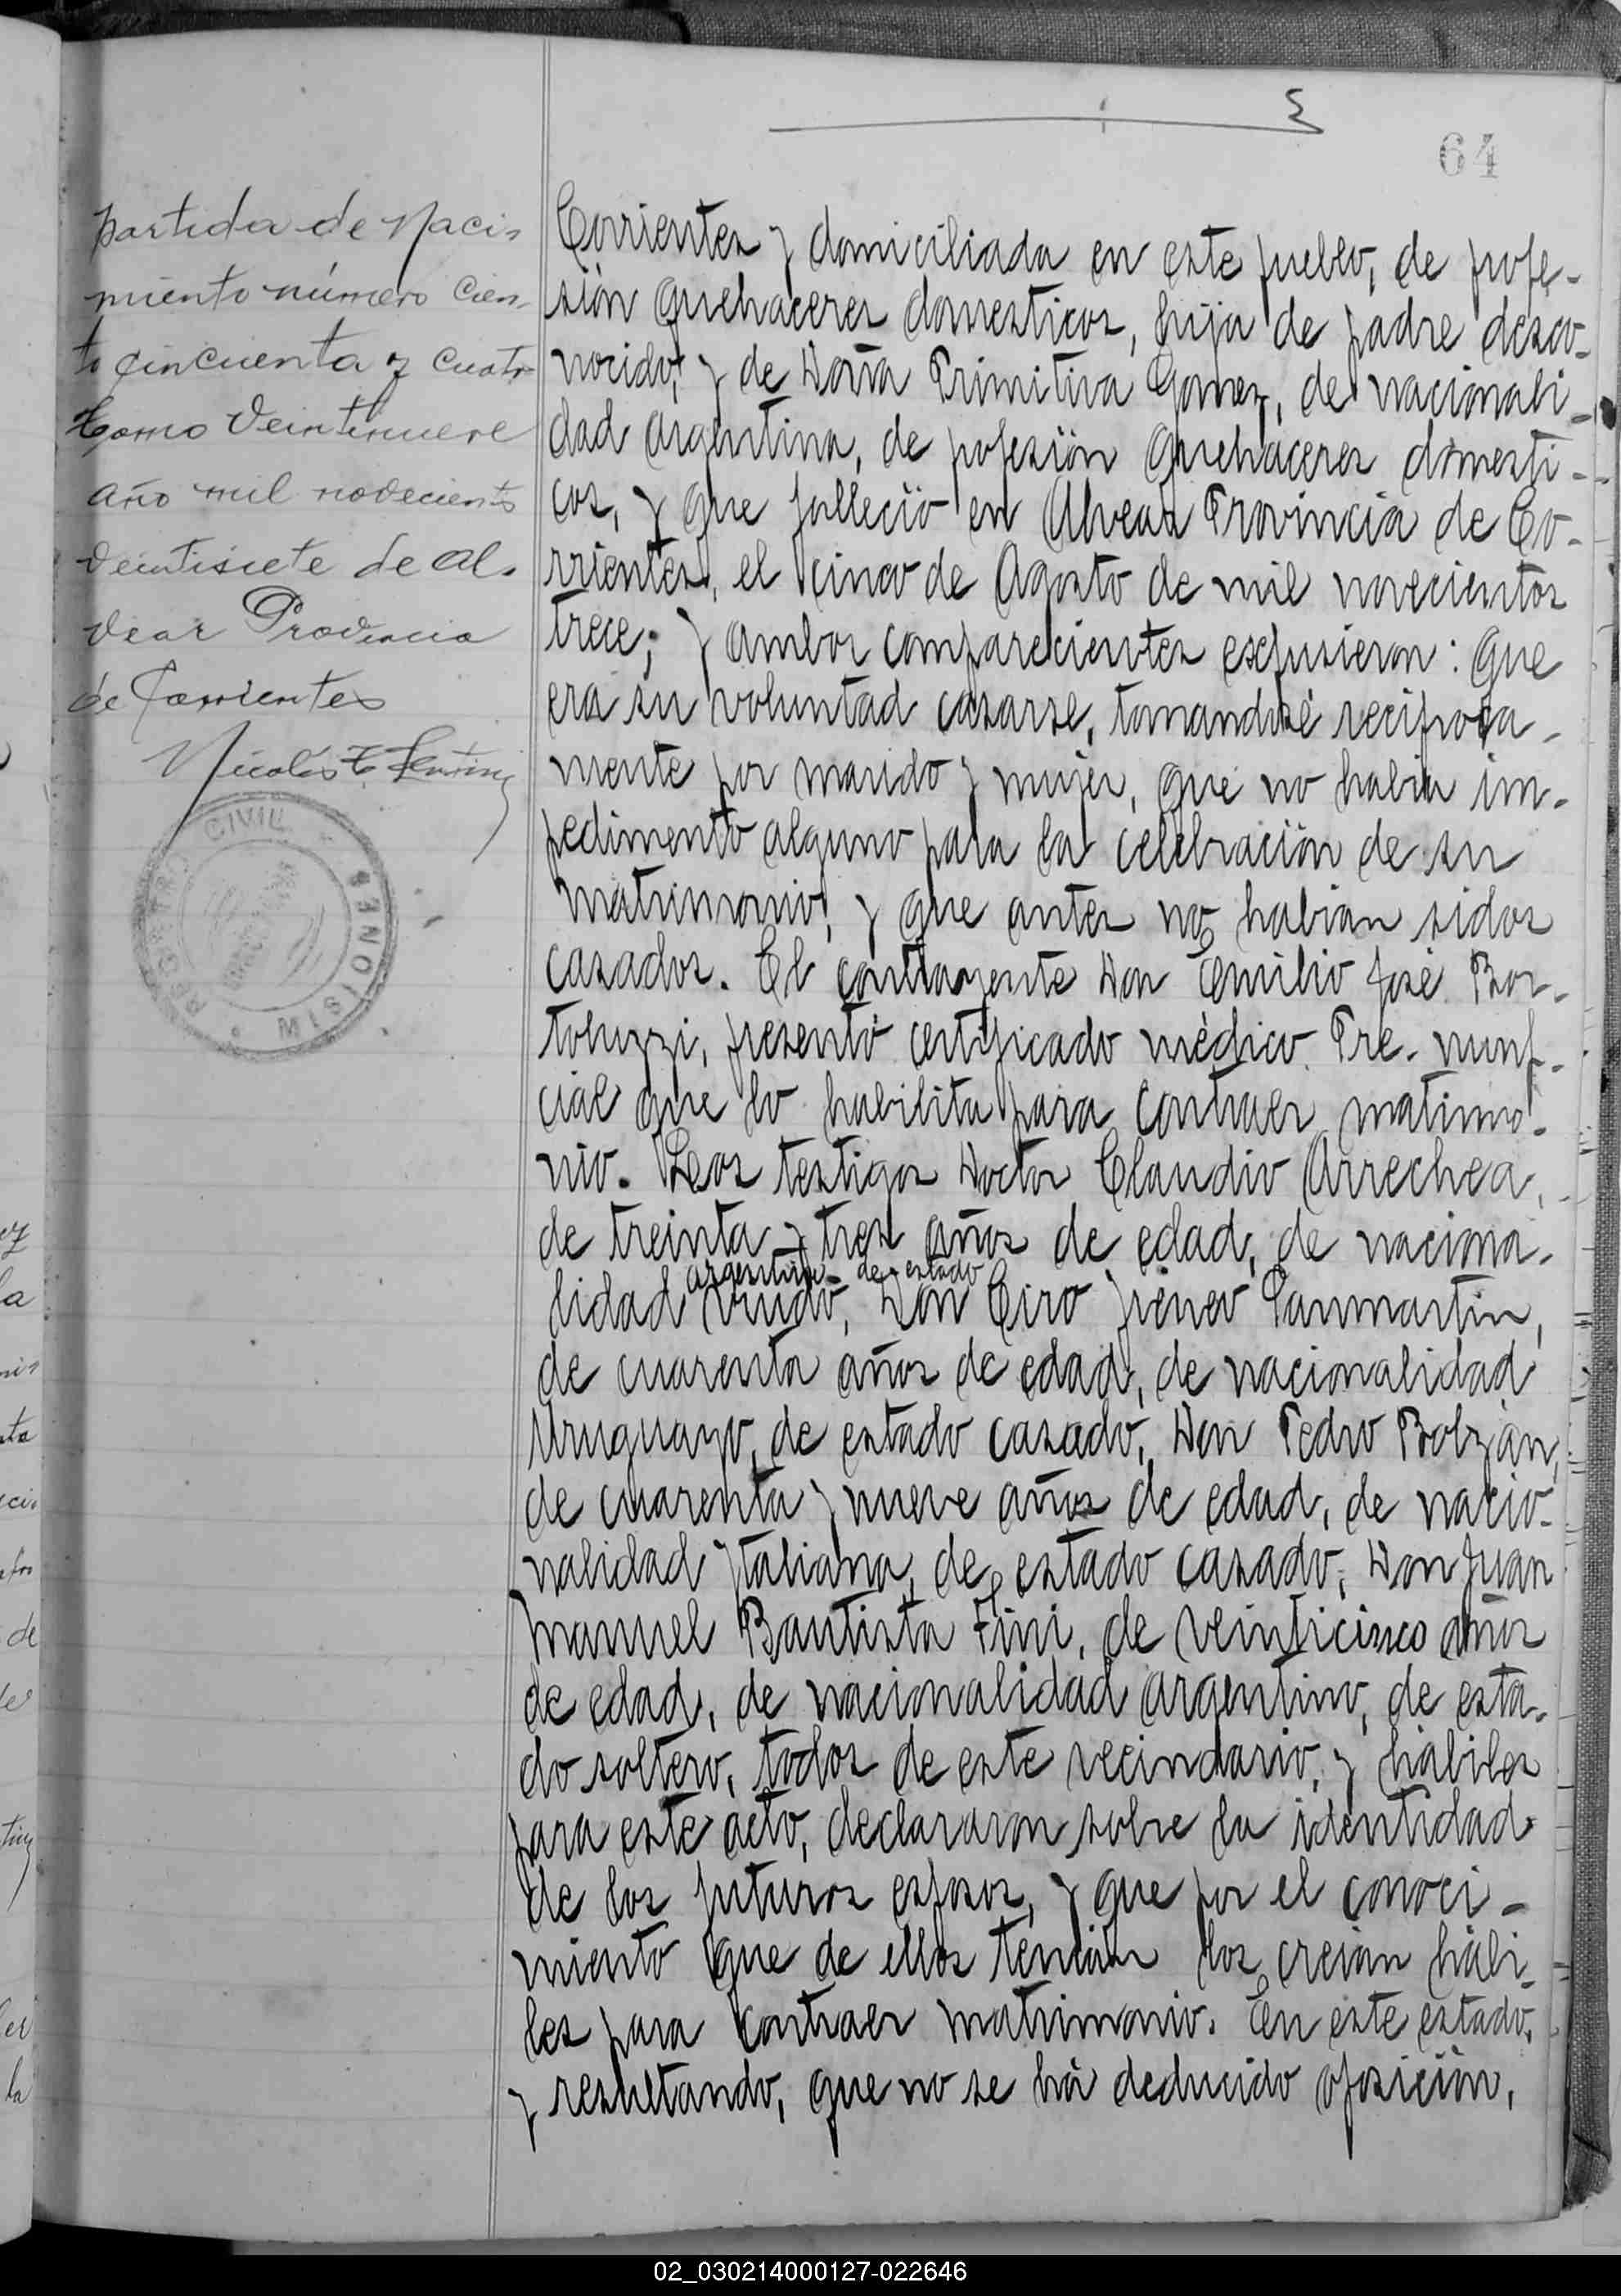 64
partida de Naci-
miento número cien-
to cincuenta y cuatro
tomo veintinueve
año mil novecientos
veintisiete de Al-
vear Provincia
de Corrientes
Nicolás
REGISTRO CIVIL
MISIONES
Corrientes y domiciliada en este pueblo, de profe-
sión quehaceres domesticos, hija de padre desco-
nocido; y de Doña Primitiva Gomez, de nacionali-
dad argentina, de pofesión quehaceres domesti-
cos, y que falleció en Alvear Provincia de Co-
rrientes, el cinco de Agosto de mil novecientos
trece; y ambos comparecientes expusieron: que
era su voluntad casarse, tomandosé reciproca-
mente por marido y mujer, que no habia im-
pedimento alguno para la celebración de su
matrimonio, y que antes no habian sidos
casados. El contrayente Don Emilio José Bor-
toluzzi, presentó certificado médico Pre-nunp-
cial que lo habilita para contraer matimo-
nio. Los testigos Doctor Claudio Arrechea,
de treinta y tres años de edad, de naciona-
argentina de estado
lidad viudo, Don Ciro Sanmartin,
de cuarenta años de edad, de nacionalidad
Uruguayo, de estado casado, Don Pedro Bolzán,
de cuarenta y nueve años de edad, de nacio-
nalidad ytaliana, de estado casado, Don Juan
Manuel Bautista Fini, de veinticinco años
de edad, de nacionalidad argentino, de esta-
do soltero, todos de este vecindario, y hábiles
para este acto, declararon sobre la identidad
de los futuros esposos, y que por el conoci-
miento que de ellos tenián los creián hábi-
les para contraer matrimonio. En este estado,
y resultando, que no se há deducido oposición,
02_030214000127-022646